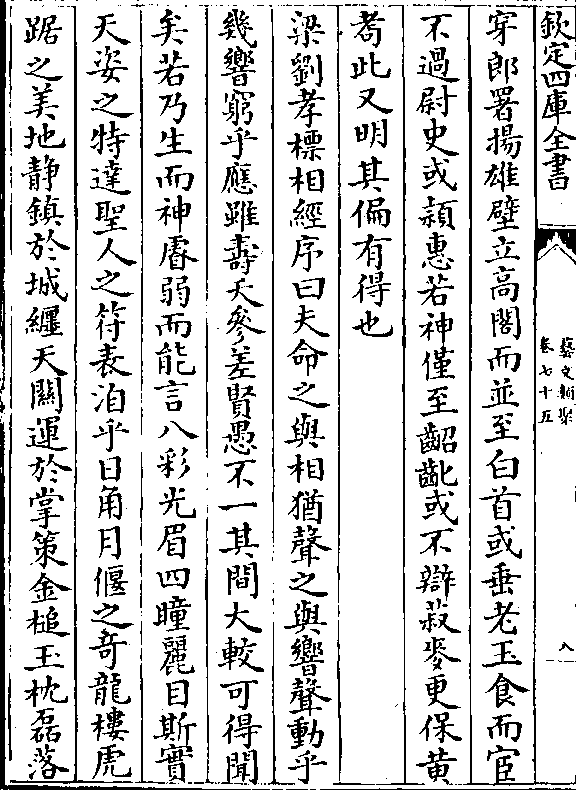 欽定四庫全書
藝文類聚
卷七十五
八
穿郎署揚雄壁立高閣而並至白首或垂老玉食而宦
不過尉史或頴惠若神僅至齠齔或不辯菽麥更保黃
耈此又明其偏有得也
梁劉孝標相經序曰夫命之與相猶聲之與響聲動乎
幾響窮乎應雖壽夭參差賢愚不一其間大較可得聞
矣若乃生而神睿弱而能言八彩光眉四瞳麗目斯實
天姿之特達聖人之符表洎乎日角月偃之奇龍樓虎
踞之美地静鎮於城纒天關運於掌策金槌玉枕磊落